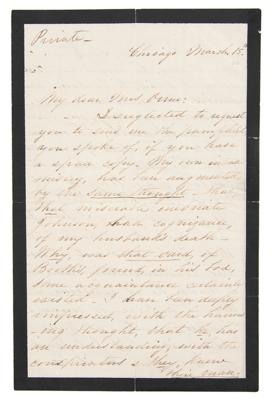 Private _
Chicago March 15th
My dear Mrs Orne:
I neglected to request
you to send me the pamphlet
you spoke of, if you have
a spare copy. My own intense
misery, has been augmented
by the same thought - that,
that miserable inebriate
Johnson, had cognizance,
of my husband's death -
Why, was that card, of
Booth's, found, in his box,
some acquaintance certainly
existed - I have been deeply
impressed, with the harrow-
-ing thought, that he, has
an understanding with the
conspirators & they knew
their man.